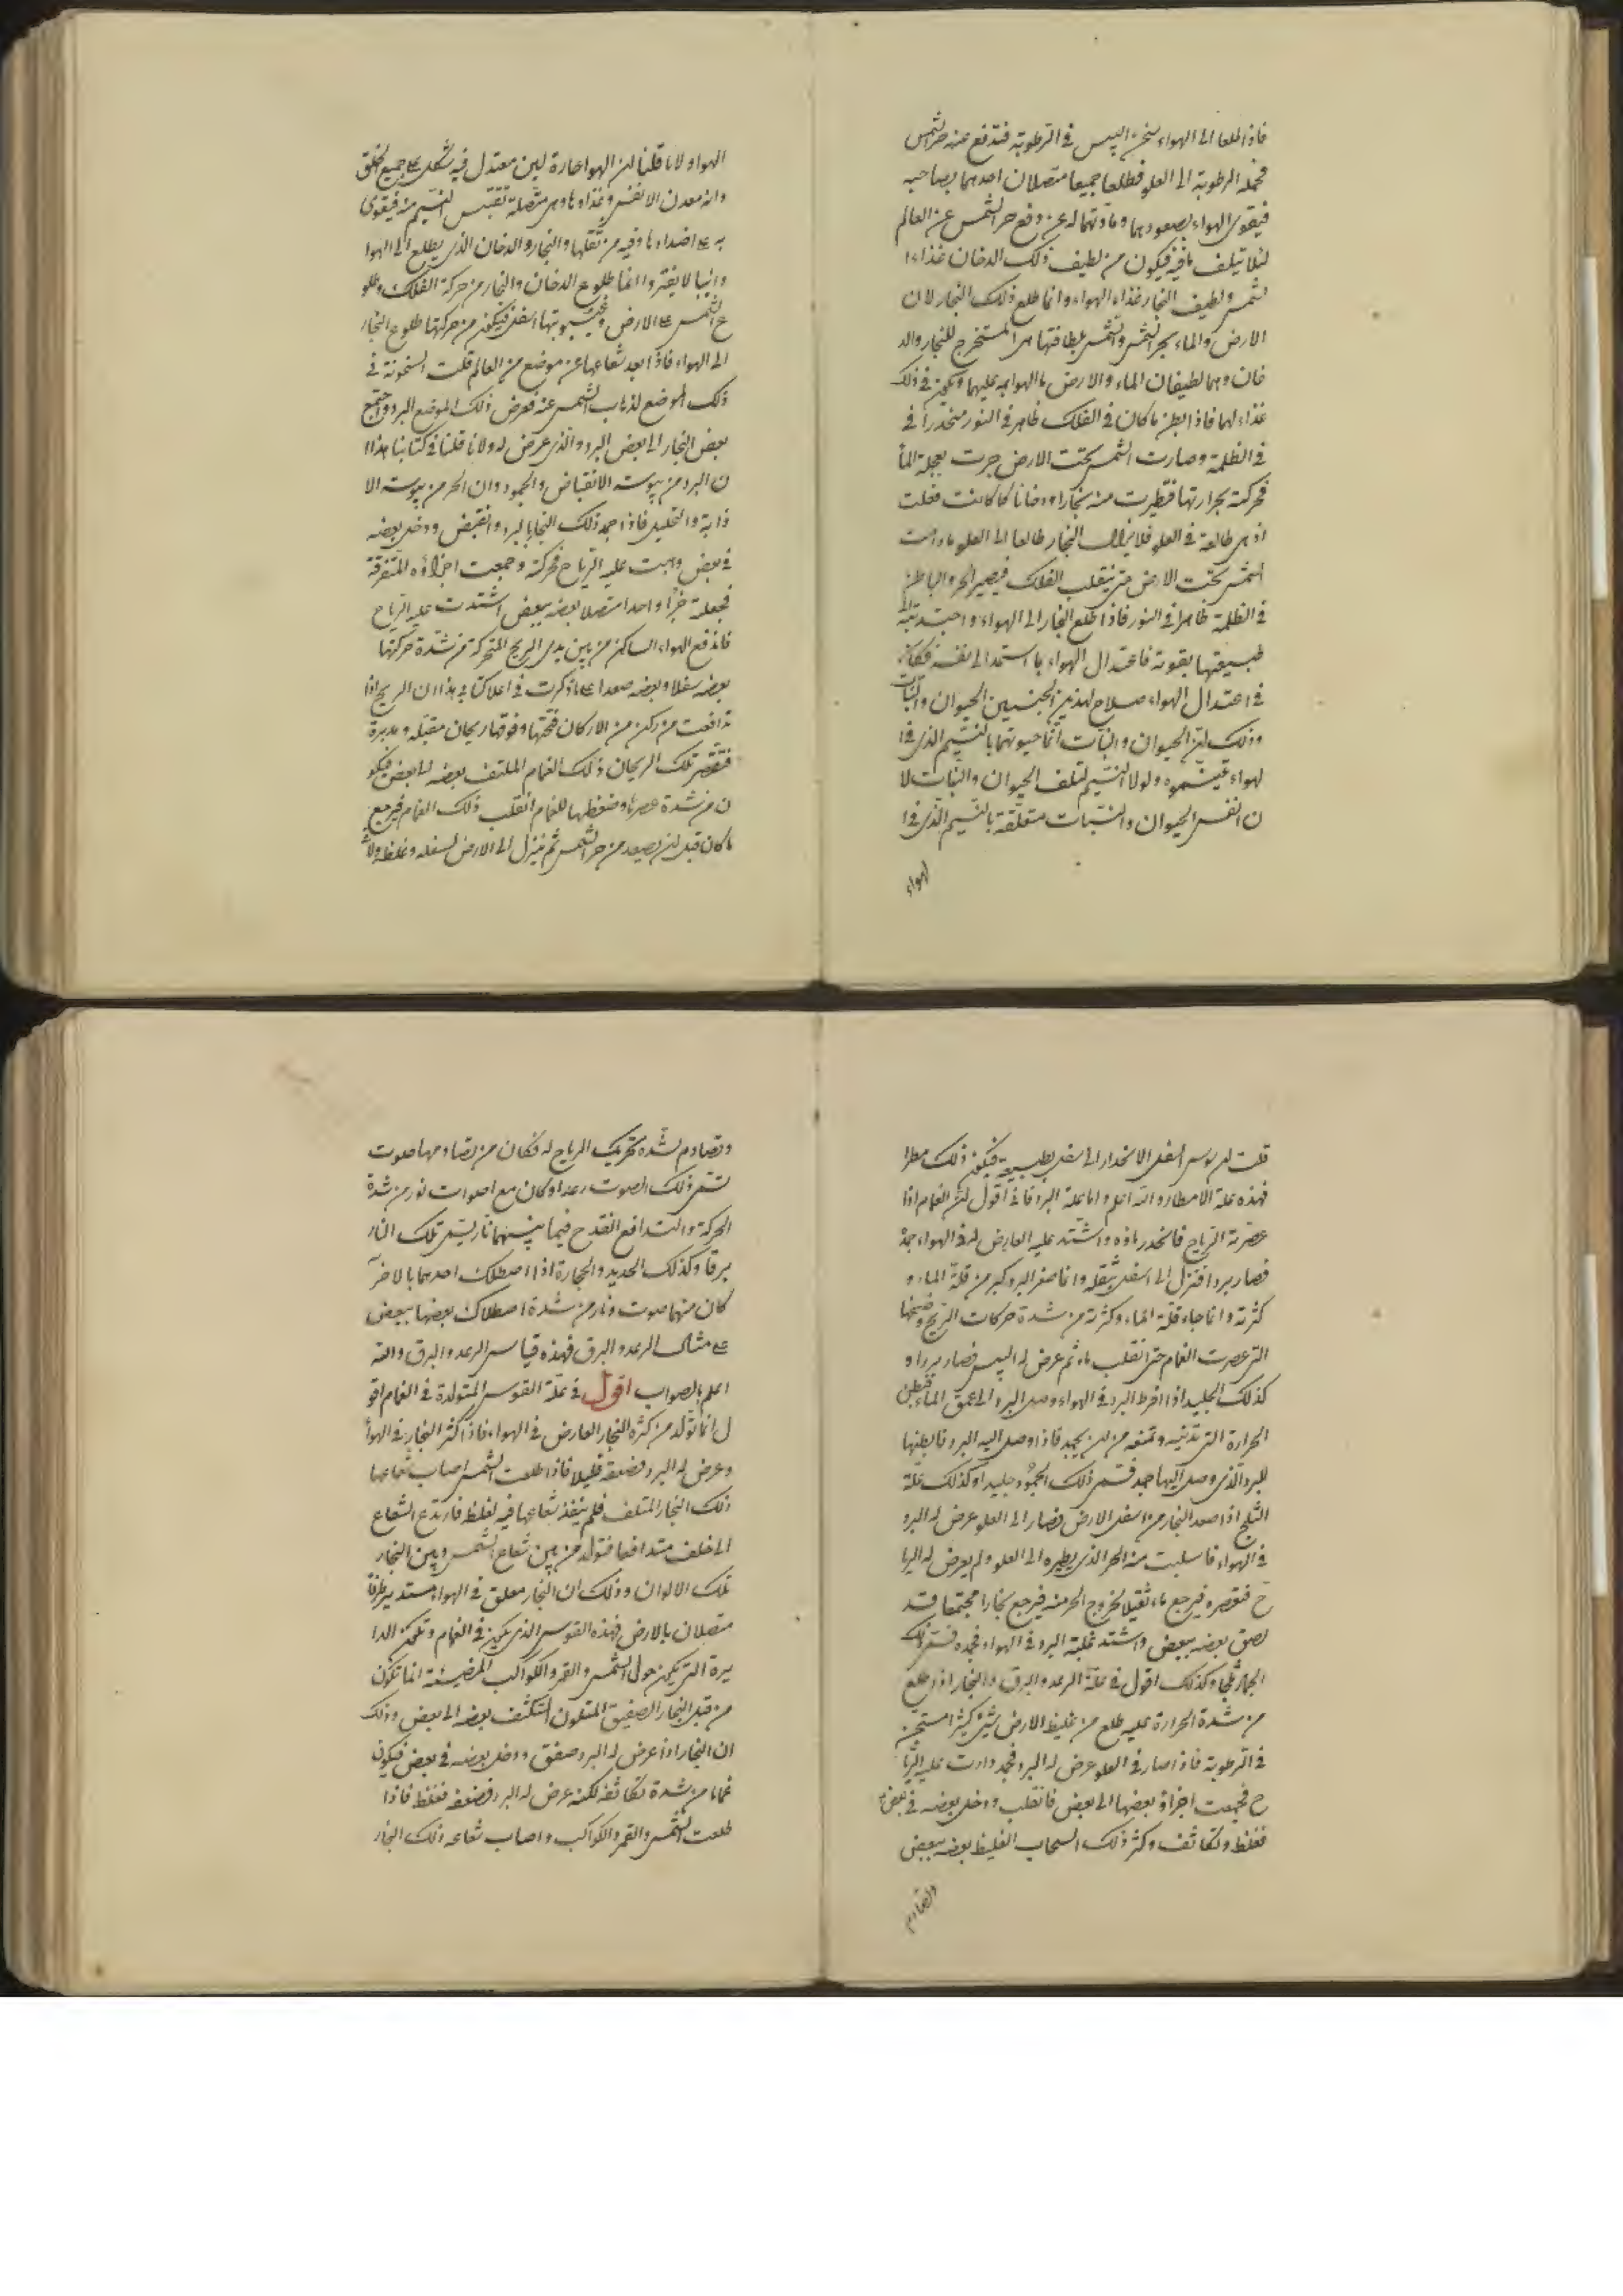 فاذا طلعا الى الهواء سخن اليبس في الرطوبة فتدفع عنه حر الشمس
فحمله الرطوبة الى العلو فطلعا جميعا متصلان احدهما بصاحبه
فيقوى الهواء بصعودهما وماد تهما له عن دفع حر الشمس عن العالم
لئلا يتلف ما فيه فيكون من لطيف ذلك الدخان غذاء ا
لشمس ولطيف البخار غذاء الهواء وانما طلع ذلك البخار لان
الارض والماء بحر الشمس والشمس بلطافتها هى المستخرج للبخار والد
خان وهما لطيفان الماء والارض عليهما فى ذلك
غذاء لهما فاذا ابطن ما كان فى الفلك ظاهر فى النور منحدرا فى
فى الظلمة وصارت الشمس تحت الارض جرت بعجلة الما
فحركته بحرارتها فتطيرت منه بخارا ودخانا كما كانت فعلت
اذ هى طالعة فى العلو فلا يزال البخار طالعا الى العلو ما دامت
الشمس تحت الارض حتى ينقلب الفلك فيصير الحر والباطن
فى الظلمة ظاهرا فى النور فاذا طلع البخار الى الهواء واجتذبته الى
طبيعتها بقوته فاعتدال الهواء بما استمد الى نفسه فكان
فى اعتدال الهواء صلاح لهذين الجنسين الحيوان والنبات
وذلك لان الحيوان والنبات انما حيوتهما بالنسيم الذى فى ا
لهواء ولولا النسيم لتلف الحيوان والنبات لا
ن انفس الحيوان والنبات متعلقة بالنسيم الذى فى ا
لهواء
الهواء ولانا قلنا ان الهواء حارة لين معتدل فيه شكل على جميع الخلق
وانه معدن الانفس وغذاوها وهى متصلة تقتبس النسيم منه فيقوى
به على اضدادها وفيه من ثقلها والبخار والدخان الذى يطلع الى الهوا
دائبا لا يفتر وانما طلوع الدخان والبخار من حركة الفلك وطلو
ع الشمس على الارض وغيبوبتها اسفل فيكون من حركتها طلوع البخار
الى الهواء فاذا بعد شعاعها عن موضع من العالم قلت السخونة فى
ذلك الموضع لذهاب الشمس عنه فعرض ذلك الموضع البرد واجتمع
بعض البخار الى بعض البرد والذى عرض له ولانا قلنا فى كتابنا هذا ا
ن البرد من يبوسته الانقباض والجمود وان الحر من يبوسته الا
ذابة والتحليل فاذا جمد ذلك البخار بالبرد وانقبض ودخل بعضه
فى بعض وهبت عليه الرياح فحركته وجمعت اجزاؤه المتفرقة
فجعلته جزءا واحدا متصلا بعضه ببعض اشتدت عليه الرياح
فاندفع الهواء الساكن من بين يدى الريح المتحركة من شدة حركتها
بعضه سفلا وبعضه صعدا على ما ذكرت فى اعلا كتابى هذا ان الريح اذا
تدافعت من ركن من الاركان فتحتها وفوقها ريحان مقبلة ومدبرة
فتعتصر تلك الريحان ذلك الغمام الملتف بعضه الى بعض فيكو
ن من شدة عصرها وضغطها للغمام انقلب ذلك الغمام فيرجع
ما كان قبل ان يصعد من حر الشمس ثم ينزل الى الارض لسفله وغلظه ولا
قلت ان يوسى اسفل الانحدار الى اسفل بطبيعته فيكون ذلك مطرا
فهذه علة الامطار والله اعلم واما علة البرد فانى اقول ان الغمام اذا
عصرته الرياح فانحدر ماؤه واشتد عليه العارض له فى الهواء جمد
فصار بردا فنزل الى اسفل بثقله وانما صغر البرد وكبر من قلة الماء و
كثرته وانما جاء قلة الماء وكثرته من شدة حركات الريح وضغطها
التى عصرت الغمام حتى انقلب ماء ثم عرض له اليبس فصار بردا و
كذلك الجليد اذا افرط البرد فى الهواء وصل البرد الى عمق الماء فبطن
الحرارة التى تذيبه وتمنعه من ان يجمد فاذا وصل اليه البرد فابطنها
للبرد الذى وصل اليها جمد فسمى ذلك الجمود جليدا وكذلك علة
الثلج اذا صعد البخار من اسفل الارض فصار الى العلو عرض له البرد
فى الهواء فاسلبت منه الحر الذى يطيره الى العلو ولم يعرض له الريا
ح فتعصره فيرجع ماء ثقيلا لخروج الحر منه فيرجع بخارا مجتمعا قد
لصق بعضه ببعض واشتد غلبة البرد فى الهواء فجمده فسمى ذلك
الجماد ثلجا وكذلك اقول فى علة الرعد والبرق والبخار اذا طلع
من شدة الحرارة عليه طلع من غليظ الارض شئ كثير مستجن
فى الرطوبة فاذا صار فى العلو عرض له البرد فجمد ودارت عليه الريا
ح فجمعت اجزاؤه بعضها الى بعض فانقلب ودخل بعضه فى بعض
فغلظ وتكاثف وكثر ذلك السحاب الغليظ بعضه ببعض
وتصادم
وتصادم لشدة تحريك الرياح له فكان من تصادمها صوت
تسمى ذلك الصوت رعدا وكان مع اصوات نور من شدة
الحركة والتدافع انقدح فيما بينهما نار يسمى تلك النار
برقا وكذلك الحديد والحجارة اذا اصطلك احدهما بالاخر
كان منهما صوت ونار من شدة اصطلاك بعضها ببعض
على مثال الرعد والبرق فهذه قياس الرعد والبرق والله
اعلم بالصواب اقول فى علة القوس المتولدة فى الغمام اقو
ل انما تولد من كثرة البخار العارض فى الهواء فاذا كثر البخار فى الهوا
وعرض له البرد فضعفه قليلا فاذا طلعت الشمس اصاب شعاعها
ذلك البخار المتلف فلم ينفذ شعاعها فيه لغلظه فارتدع الشعاع
الى خلف متدافعا فتولد من بين شعاع الشمس وبين البخار
تلك الالوان وذلك ان البخار معلق فى الهواء مستدير طرفا
متصلان بالارض فهذه القوس الذى يكون فى الغمام وتلك الدا
يرة التى تكون حول الشمس والقمر والكواكب المضيئة انما تكون
من قبل البخار الصفيق المتلون المتكثف بعضه الى بعض وذلك
ان البخار اذا عرض له البرد صفق ودخل بعضه فى بعض فيكون
غماما من شدة تكاثفه لكنه عرض له البرد فضعفه فغلظ فاذا
طلعت الشمس والقمر والكواكب واصاب شعاعه ذلك البخار